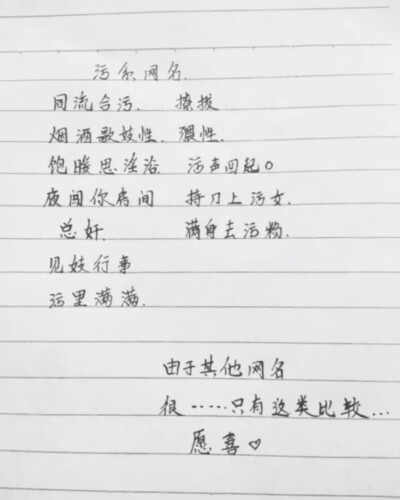 污系网名
同流合污. 撩拨
烟酒歌妓性. 猥性.
饱暖思淫浴 污声回起。
夜闯你房间 持刀上污女.
总奸 满身去污粉.
见妓行事
污里满满.
由于其他网名
很……只有这类比较...
愿喜♡